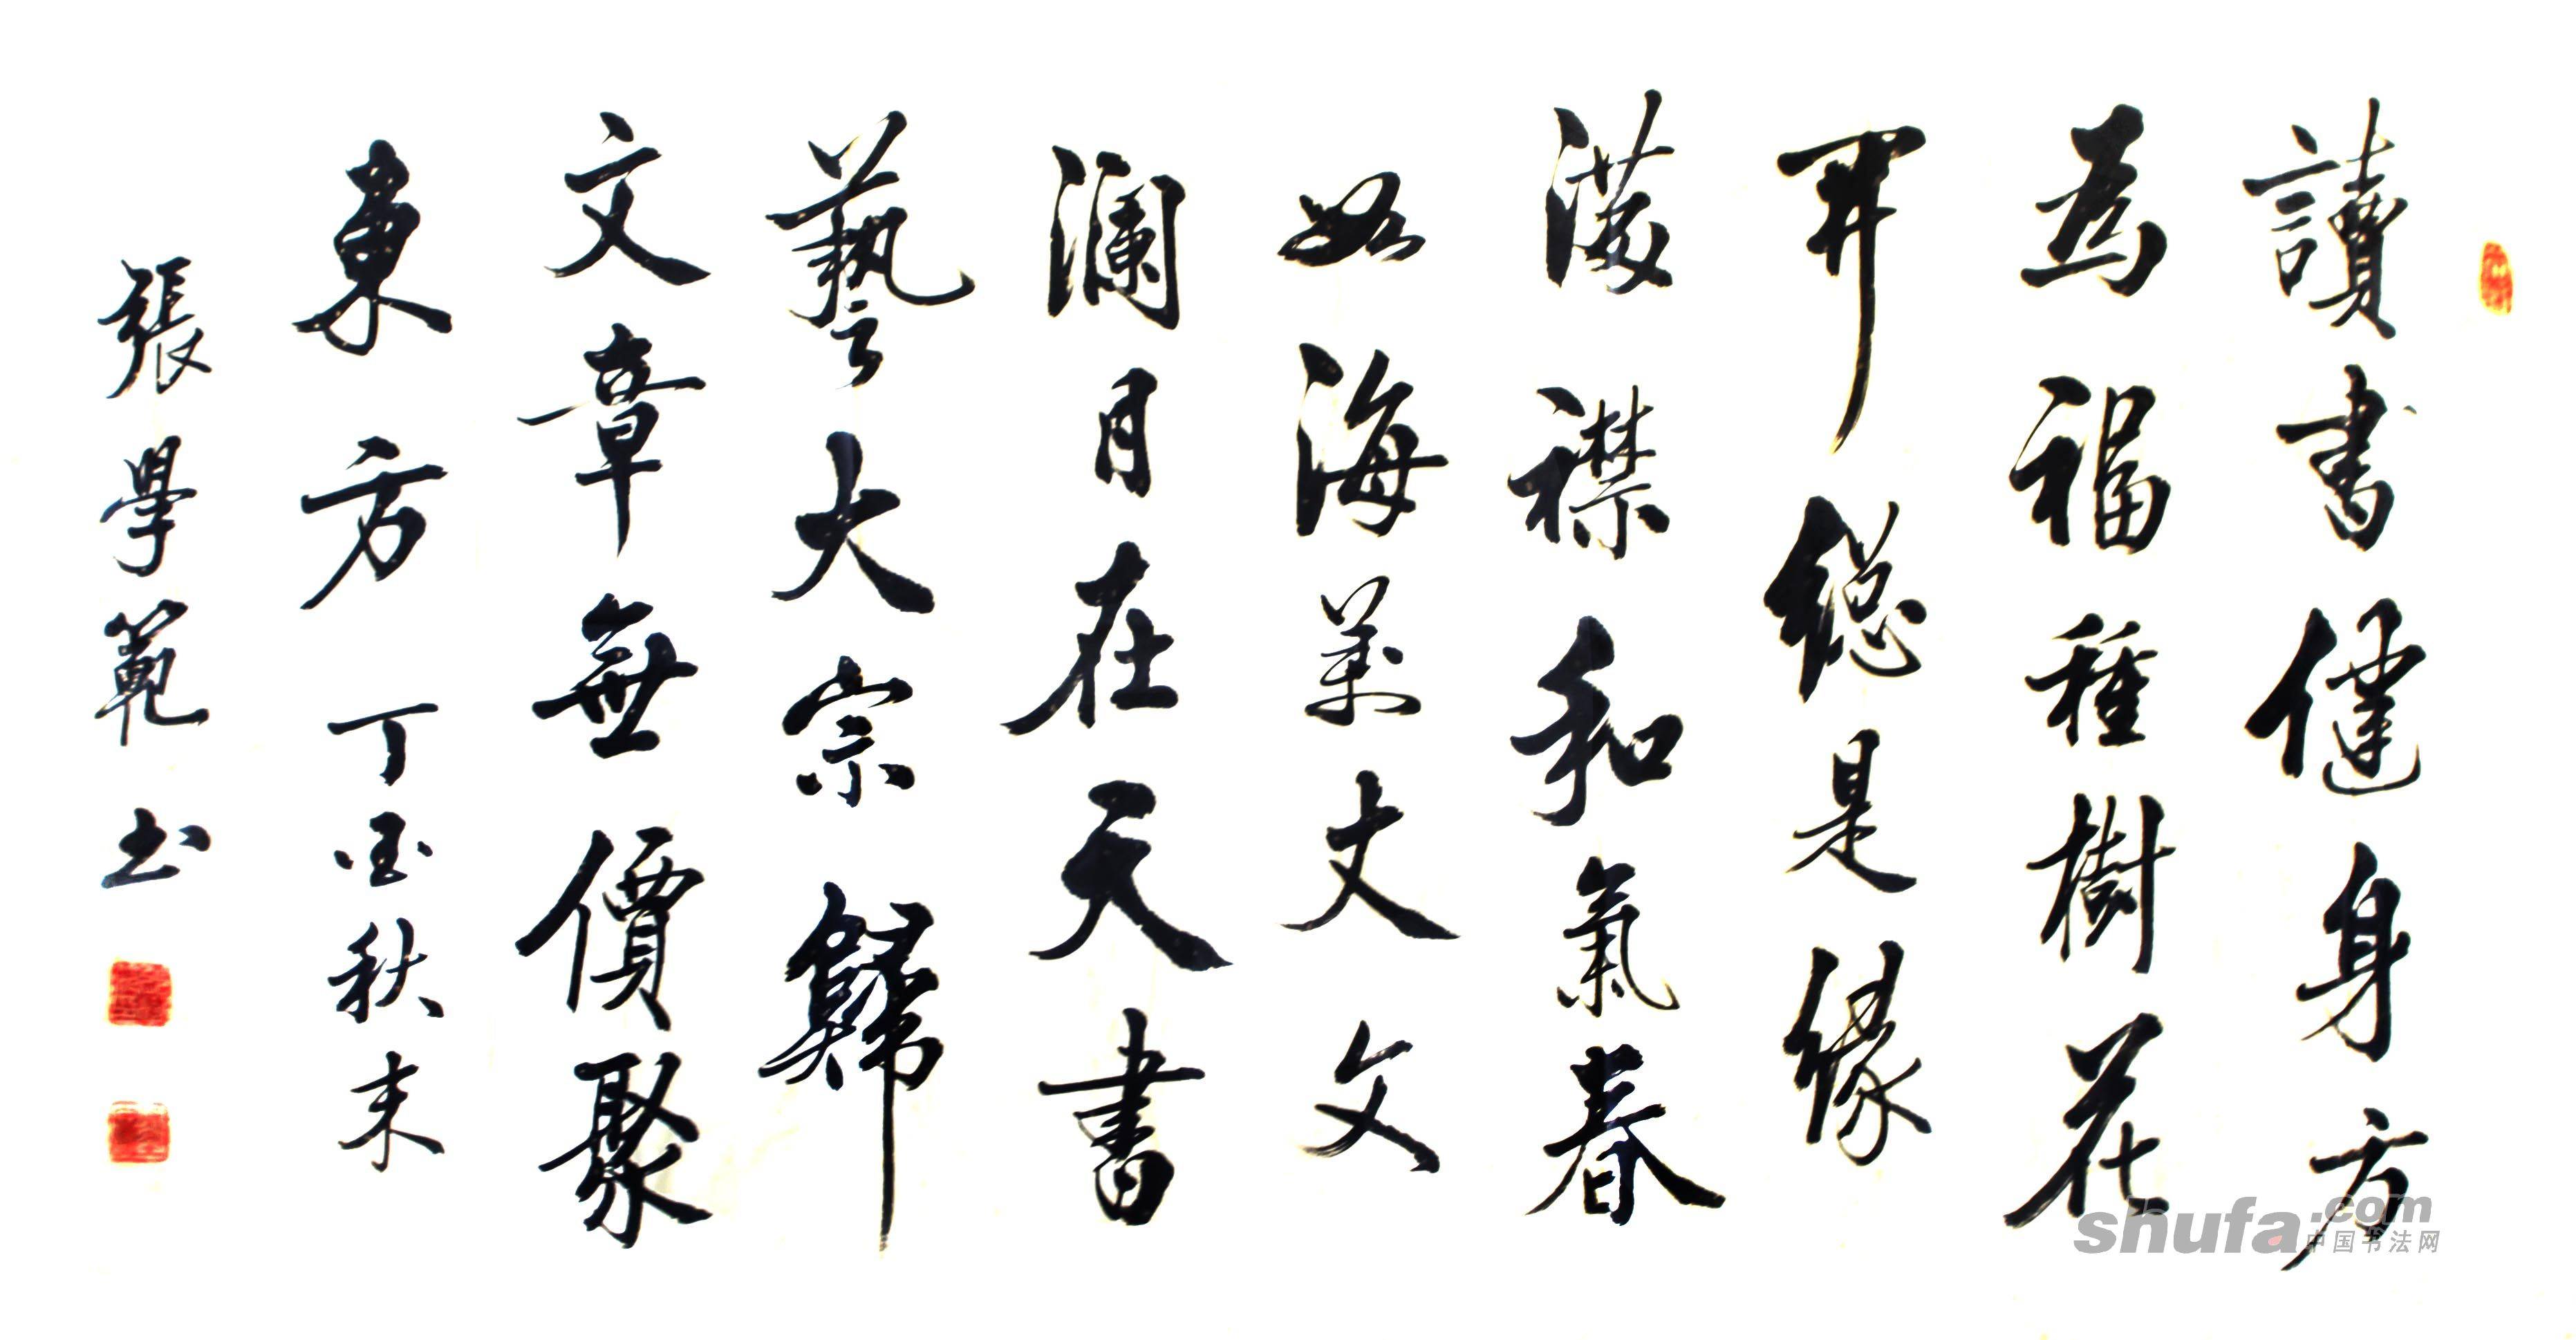 讀書健身方
為福種樹花
開總是緣
滿襟和氣春
如海萬丈文
瀾月在天書
藝大宗歸
文章無價聚
東方 丁酉秋末
張學範书
shufa.com
中国书法网